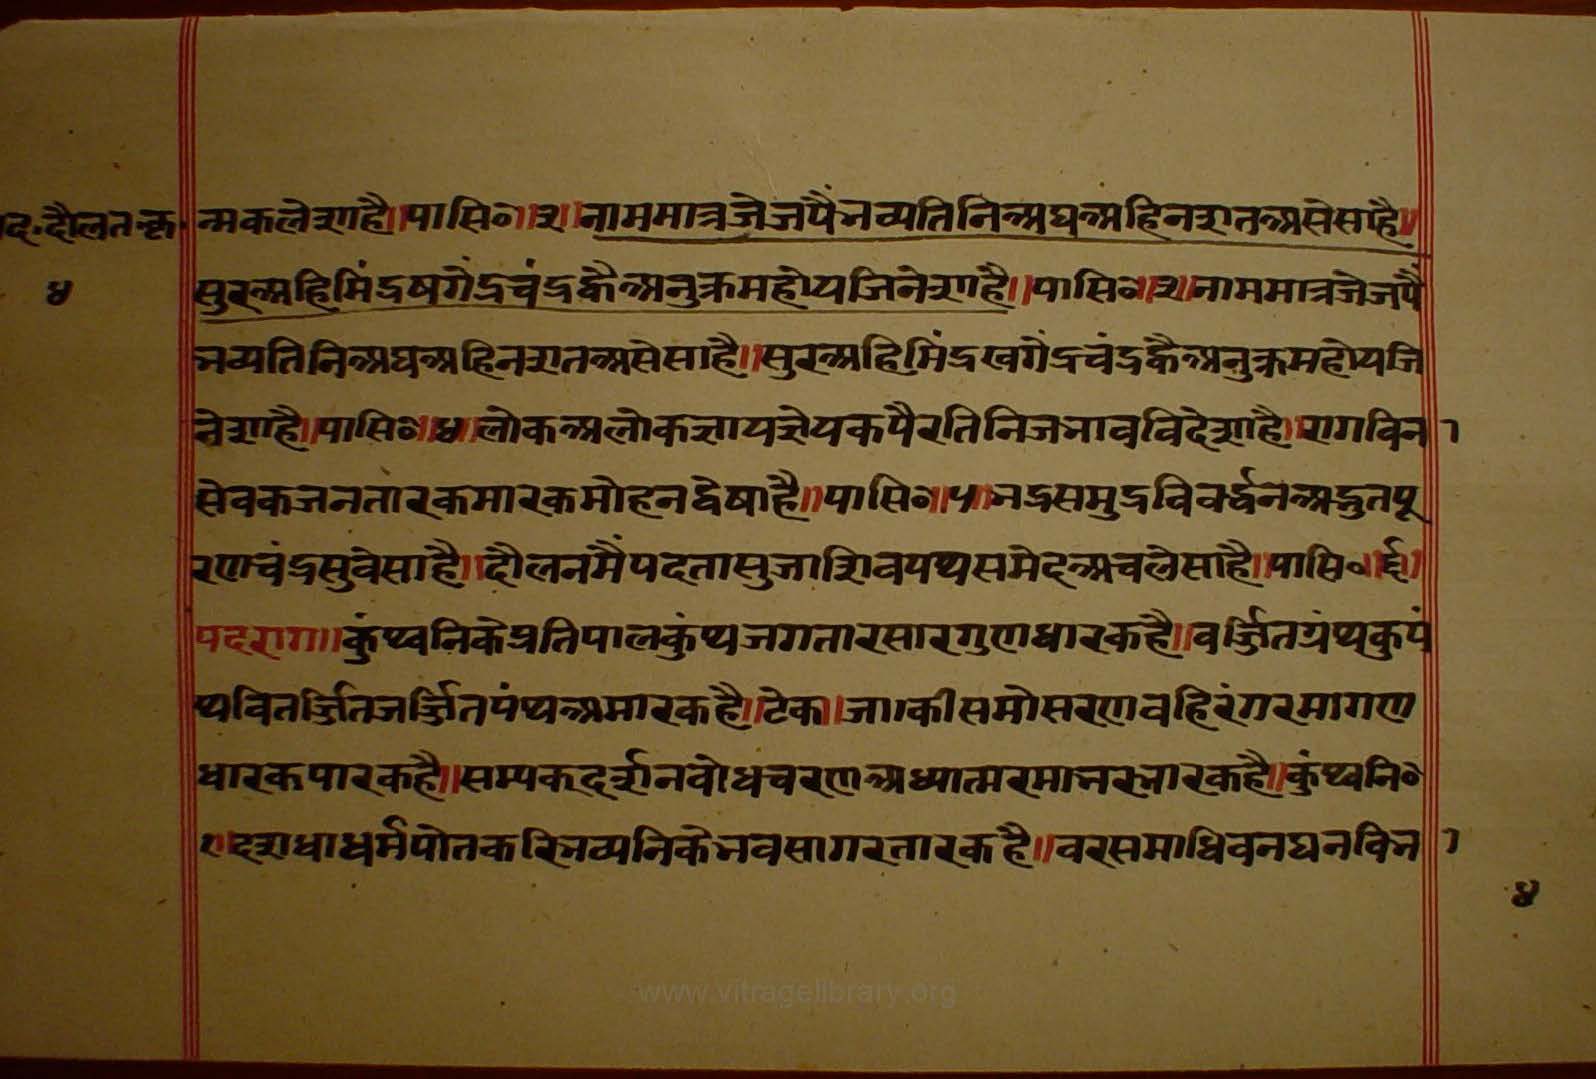 द.दौलत.कृ.
४
न्मकलेशा है॥पासि०॥२॥नाममात्रजेजपैंभव्यतिनिअघअहिनशतअसेसाहै॥
सुरअहिमिंद्रषगेंद्रचंद्रकैअनुक्रमहोयजिनेशाहै॥पासि०॥३॥नाममात्रजेजपैं
भव्यतिनिअघअहिनशतअसेसाहै॥सुरअहिमिंद्रखगेंद्रचंद्रकैअनुक्रमहोयजि
नेशाहै॥पासि०॥४॥लोकअलोकज्ञायज्ञेयकपैरतिनिजभावविदेशाहै॥रागविन
सेवकजनतारकमारकमोहनद्वेषाहै॥पासि०॥५॥भद्रसमुद्रविवर्द्धनअद्भुतपू
रणचंद्रसुवेसाहै॥दौलनमैंपदतासुजाशिवपथसमेदअचलेसाहै॥पासि०॥६॥
पदराग॥कुंथ्वनिकेप्रतिपालकुंथजगतारसारगुणधारकहै॥वर्ज्जितग्रंथकुपं
थवितर्ज्जितजर्ज्जितपंथअमारकहै॥टेक॥जाकीसमोसरणवहिरंगरमागण
धारकपारकहै॥सम्यकदर्शनवोधचरणअध्यात्मरमाभरभारकहै॥कुंथ्वनि०
१॥दशधाधर्मपोतकरिभव्यनिकेभवसागरतारकहै॥वरसमाधिवनघनविभ
४
www.vitragelibrary.org